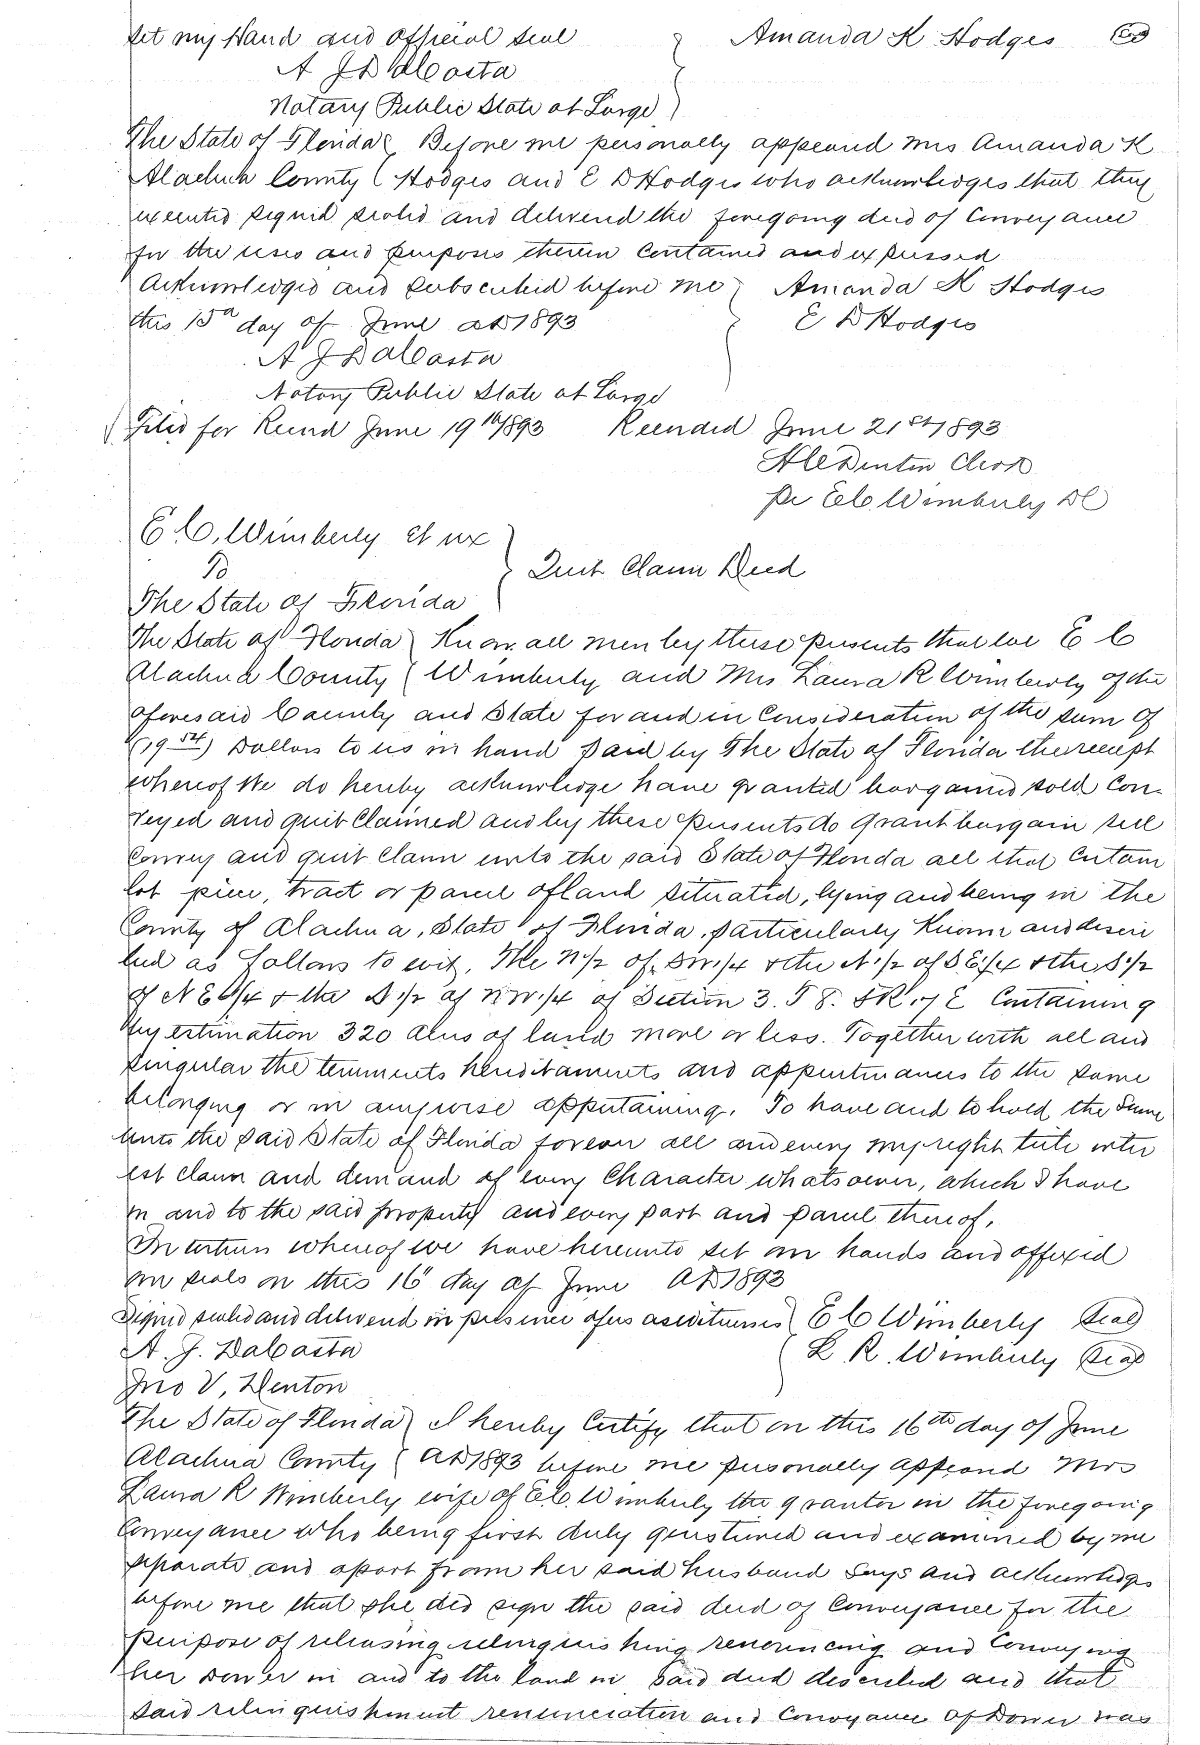 set my Hand and official seal } Amanda K Hodges
A J DaCosta
Notary Public State at Large
The State of Florida { Before me personally appeared Mrs Amanda K
Alachua County ( Hodges and E D Hodges who acknowledges that they
executed signed sealed and delivered the foregoing deed of Conveyance
for the uses and purposes therein Contained and expressed
Acknowledged and subscribed before me } Amanda K Hodges
this 15th day of June AD 1893 E D Hodges
A J DaCosta
Notary Public State at Large
Filed for Record June 19th 1893 Recorded June 21st 1893
H C Denton Clerk
Per E C Wimberly DC
E. C. Wimberly et ux
To } Quit Claim Deed
The State of Florida
The State of Florida ) Know all men by these presents that we E C
Alachua County ( Wimberly and Mrs Laura R Wimberly of the
aforesaid County and State for and in Consideration of the sum of
(19 54) Dollars to us in hand paid by The State of Florida the receipt
whereof We do hereby acknowledge have granted bargained sold Con-
veyed and quit Claimed and by these presents do grant bargain sell
Convey and quit Claim unto the said State of Florida all that Certain
lot piece, tract or parcel of land situated, lying and being in the
County of Alachua, State of Florida, particularly Known and descri
bed as follows to wit, The N 1/2 of SW 1/4 & the N 1/2 of S E 1/4 & the S 1/2
of N E 1/4 & the S 1/2 of N W 1/4 of Section 3. T 8. S R. 17 E Containing
by estimation 320 Acres of land more or less. Together with all and
singular the tenements hereditaments and appurtenances to the same
belonging or in anywise appertaining. To have and to hold the Same
unto the said State of Florida forever all and every my right title inter
est claim and demand of every Character whatsoever, which I have
in and to the said property and every part and parcel thereof.
In testim whereof we have hereunto set our hands and affixed
our seals on this 16" day of June AD 1893
Signed sealed and delivered in presence of us as witnesses } E C Wimberly Seal
A. J. DaCosta L. R. Wimberly Seal
Jno V, Denton
The State of Florida ) I hereby Certify that on this 16th day of June
Alachua County ( AD 1893 before me personally appeared Mrs
Laura R Wimberly wife of E. C. Wimberly the grantor in the foregoing
Conveyance who being first duly questioned and examined by me
separate and apart from her said husband says and acknowledges
before me that she did sign the said deed of Conveyance for the
purpose of releasing relinquishing renouncing and Conveying
her Dower in and to the land in said deed described and that
said relinquishment renunciation and Conveyance of Dower was